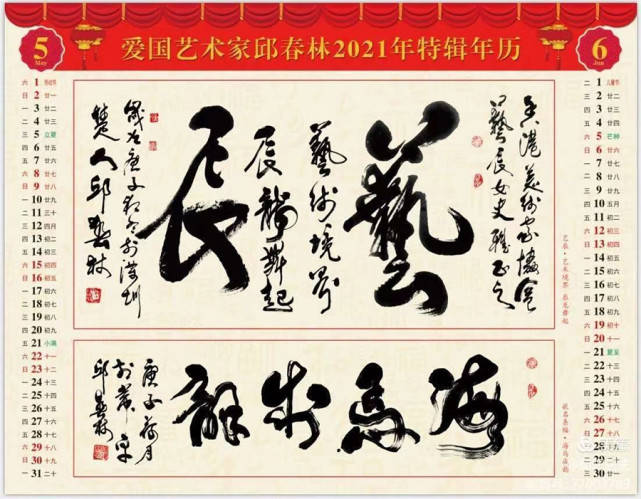 爱国艺术家邱春林2021年特辑年历
5
May
六 1 劳动节
日 2 廿一
一 3 廿二
二 4 廿三
三 5 立夏
四 6 廿五
五 7 廿六
六 8 廿七
日 9 廿八
一 10 廿九
二 11 三十
三 12 四月
四 13 初二
五 14 初三
六 15 初四
日 16 初五
一 17 初六
二 18 初七
三 19 初八
四 20 初九
五 21 小满
六 22 十一
日 23 十二
一 24 十三
二 25 十四
三 26 十五
四 27 十六
五 28 十七
六 29 十八
日 30 十九
一 31 二十
香港美術家協會
藝辰女史雅正之
藝
藝術境界
辰龍舞起
辰
歲在庚子於深圳
楚人邱春林
艺辰·艺术境界 辰龙舞起
海馬
庚子荷月
於常平
邱春林
6
Jun
二 1 儿童节
三 2 廿二
四 3 廿三
五 4 廿四
六 5 芒种
日 6 廿六
一 7 廿七
二 8 廿八
三 9 廿九
四 10 五月
五 11 初二
六 12 初三
日 13 初四
一 14
二 15 初六
三 16 初七
四 17 初八
五 18 初九
六 19 初十
日 20 十一
一 21 夏至
二 22 十三
三 23 十四
四 24 十五
五 25 十六
六 26 十七
日 27 十八
一 28 十九
二 29 二十
三 30